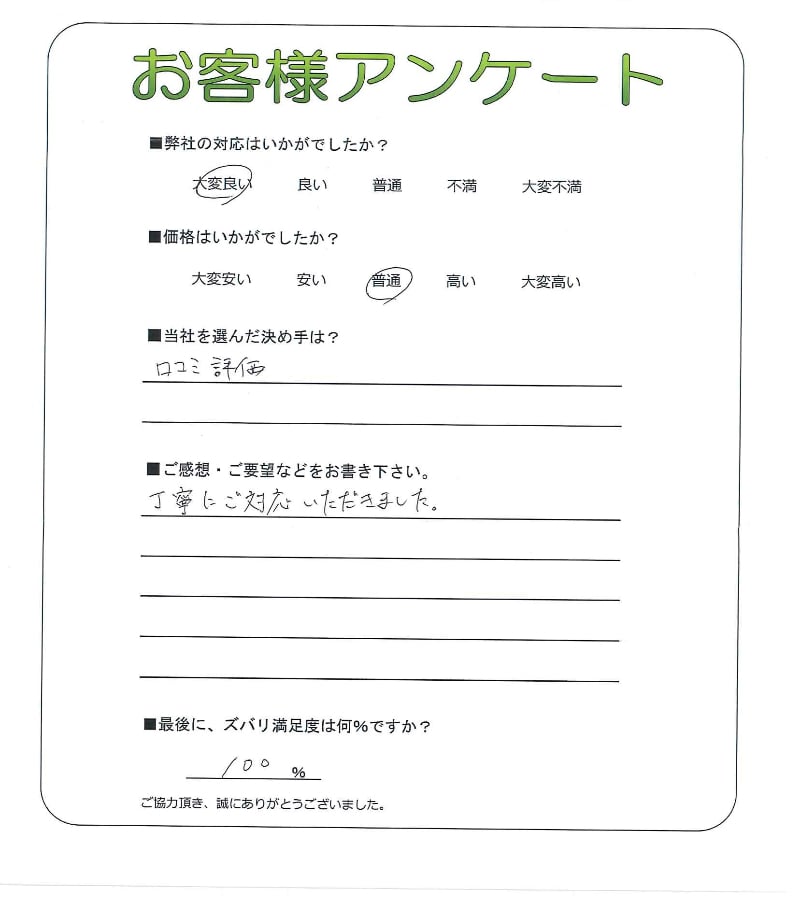 お客様アンケート
■弊社の対応はいかがでしたか？
大変良い 良い 普通 不満 大変不満
■価格はいかがでしたか？
大変安い 安い 普通 高い 大変高い
■当社を選んだ決め手は？
口コミ評価
■ご感想・ご要望などをお書き下さい。
丁寧にご対応いただきました。
■最後に、ズバリ満足度は何%ですか？
100 %
ご協力頂き、誠にありがとうございました。